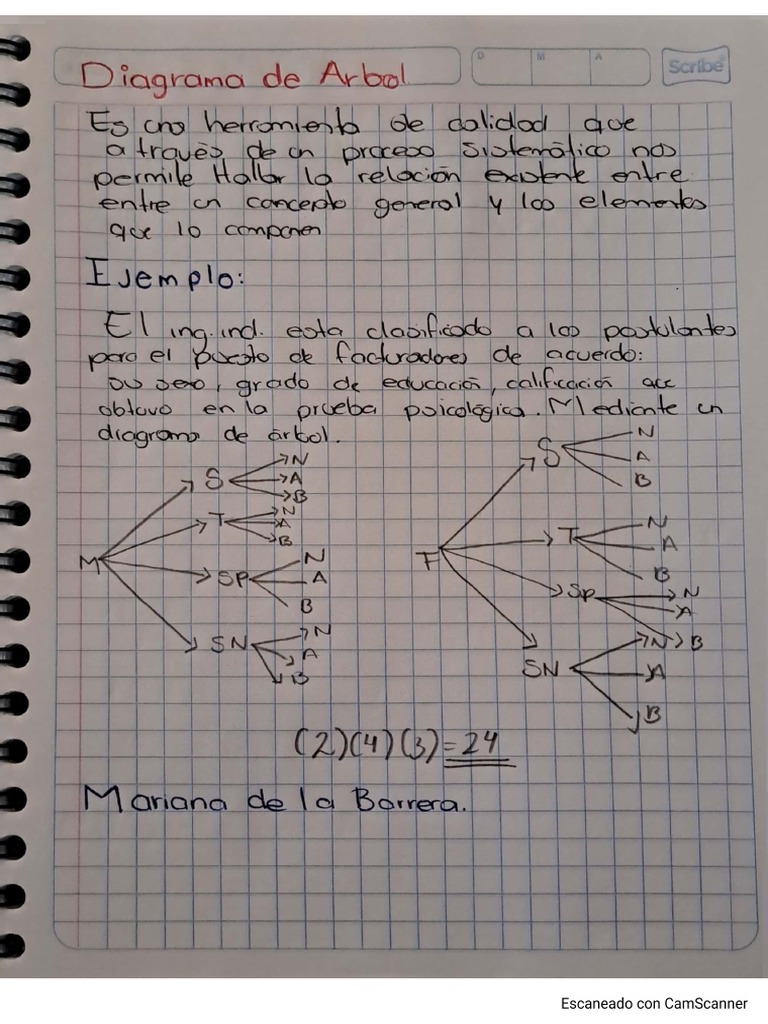 Diagrama de Arbol
D M A
Scribe
Es una herramienta de calidad que
a través de un proceso sistemático nos
permite Hallar la relación existente entre
entre un concepto general y los elementos
que lo componen
Ejemplo:
El ing. ind. esta clasificado a los postulantes
para el puesto de facturadores de acuerdo:
su sexo, grado de educación, calificación que
obtuvo en la prueba psicológica. Mediante un
diagrama de árbol.
M
S N A B
T N A B
SP N A B
SN N A B
F
S N A B
T N A B
SP N A B
SN N A B
(2)(4)(3)=24
Mariana de la Barrera.
Escaneado con CamScanner